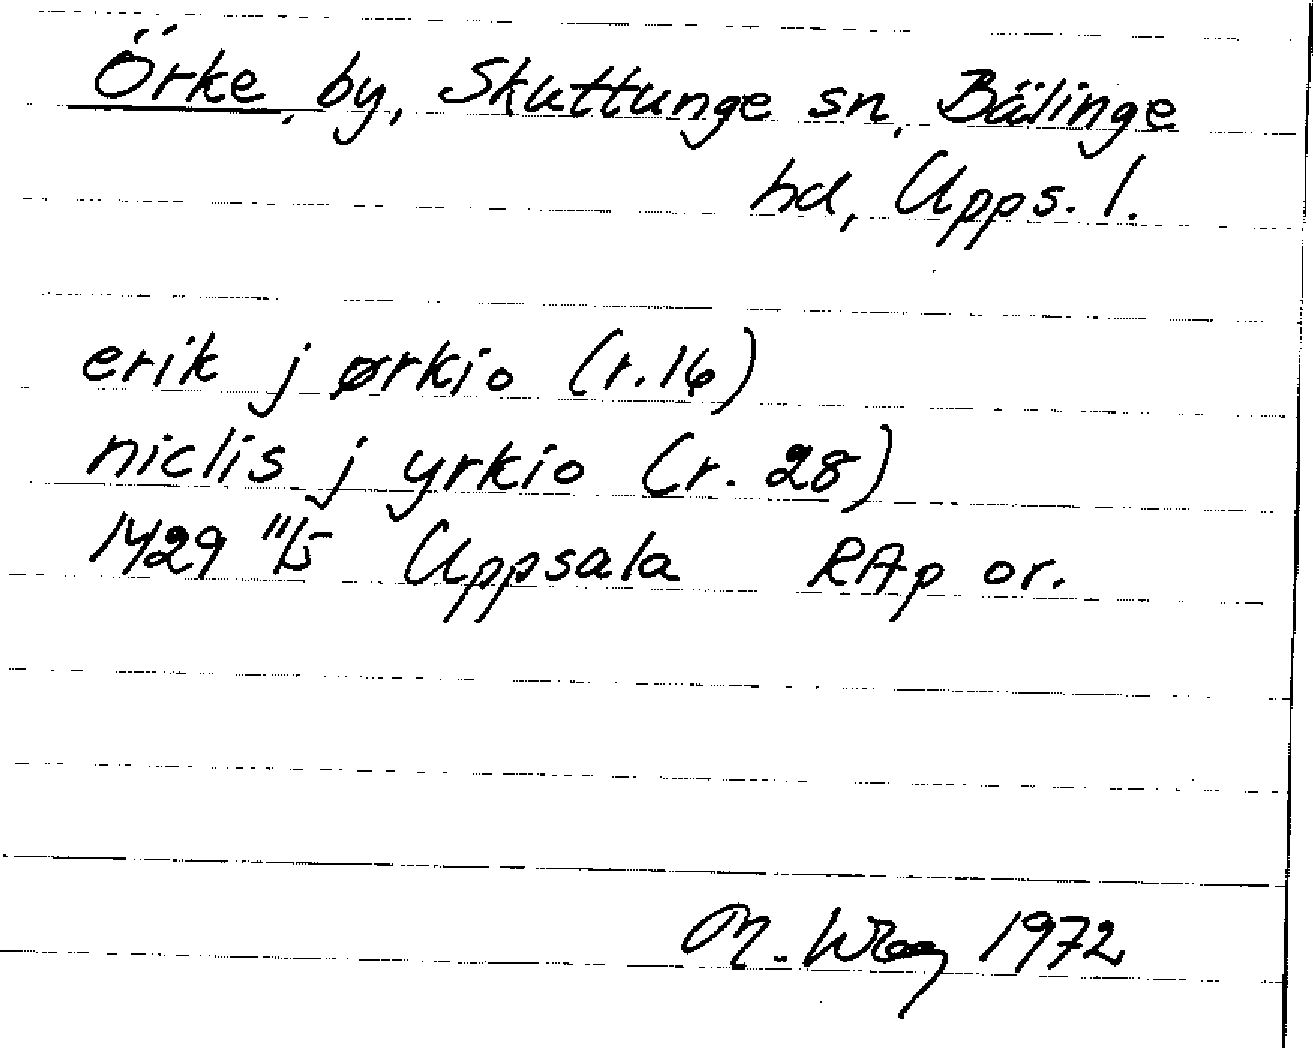 Örke, by, Skuttunge sn, Bälinge
hd, Upps. l.
erik j ørkio (r.16)
niclis j yrkio (r. 28)
1429 11/5 Uppsala RAp or.
M. 1972